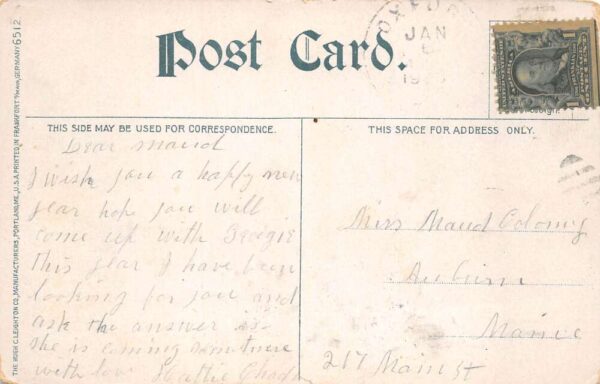 Post Card.
OXFORD
JAN
THIS SIDE MAY BE USED FOR CORRESPONDENCE.
THIS SPACE FOR ADDRESS ONLY.
Dear Maud
I wish you a happy new
year hope you will
come up with Georgie
this year I have been
looking for you and
ask the answer is
she is coming sometime
with love Hattie
Miss Maud Colomy
Auburn
Maine
217 Main St
THE HUGH C. LEIGHTON CO., MANUFACTURERS, PORTLAND, ME., U.S.A. PRINTED IN FRANKFORT MAIN, GERMANY 6512